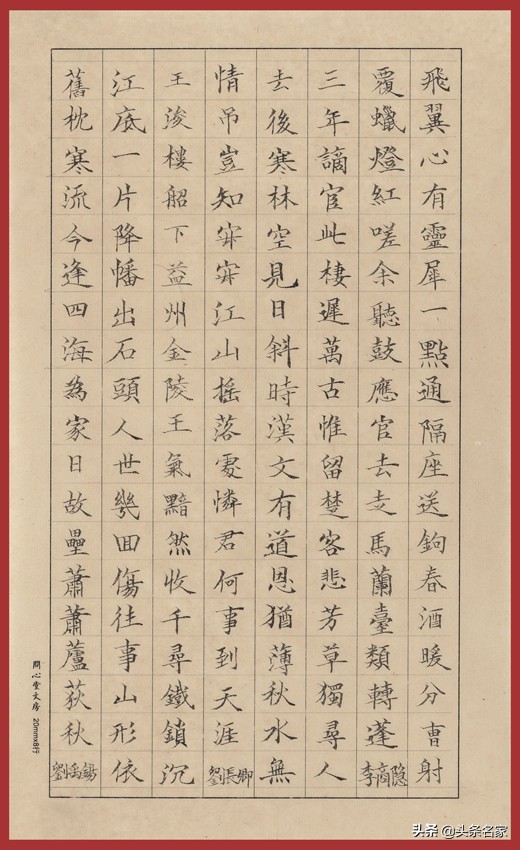 飛翼心有靈犀一點通隔座送鉤春酒暖分曹射
覆蠟燈紅嗟余聽鼓應官去走馬蘭臺類轉蓬李商隐
三年謫宦此棲遲萬古惟留楚客悲芳草獨尋人
去後寒林空見日斜時漢文有道恩猶薄秋水無
情吊豈知寂寂江山搖落處憐君何事到天涯劉長卿
王浚樓船下益州金陵王氣黯然收千尋鐵鎖沉
江底一片降幡出石頭人世幾回傷往事山形依
舊枕寒流今逢四海為家日故壘蕭蕭蘆荻秋劉禹錫
問心堂文房 20mmx8行
头条 @头条名家